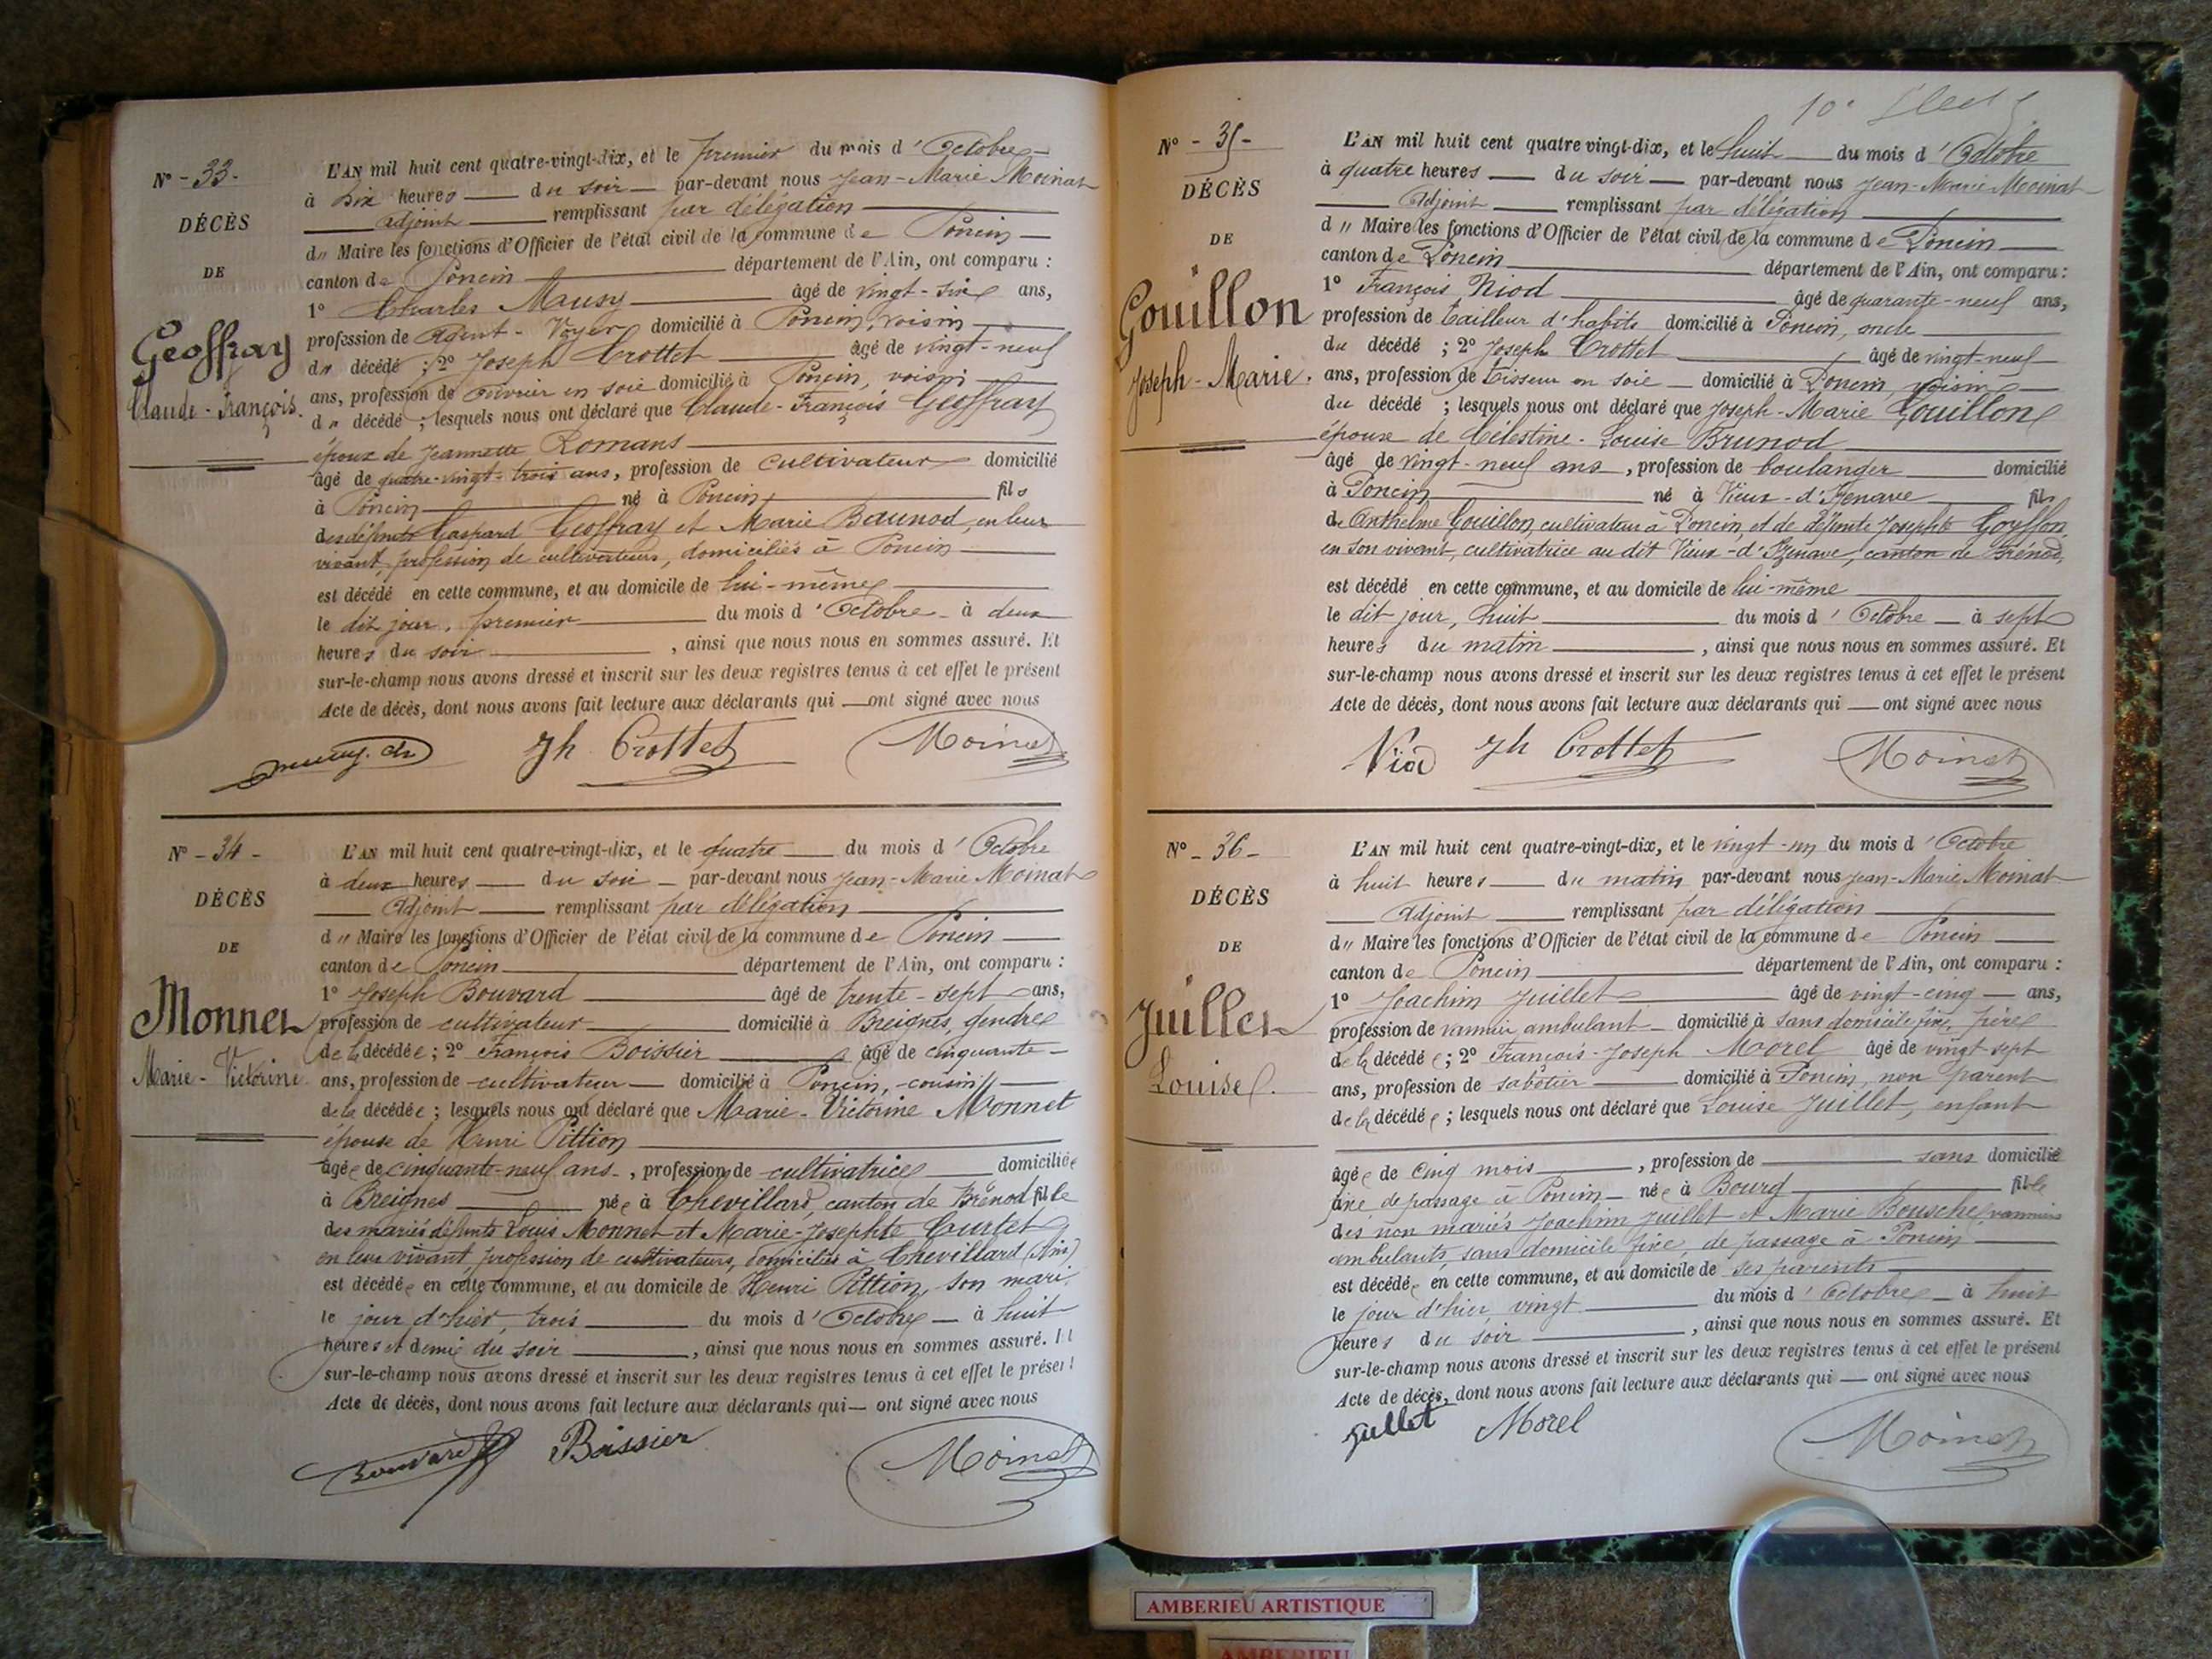 N° - 33 -
DÉCÈS
DE
Geoffray
Claude - François.
L'AN mil huit cent quatre-vingt-dix, et le premier du mois d'Octobre
à Six heures du soir par-devant nous Jean-Marie Moinat
Adjoint remplissant par délégation
d" Maire les fonctions d'Officier de l'état civil de la commune de Poncin
canton de Poncin département de l'Ain, ont comparu :
1° Charles Mausy âgé de vingt-six ans,
profession de Agent-Voyer domicilié à Poncin, voisin
du décédé ; 2° Joseph Crottet âgé de vingt-neuf
ans, profession de ouvrier en soie domicilié à Poncin, voisin
du décédé ; lesquels nous ont déclaré que Claude-François Geoffray
époux de Jeannette Romans
âgé de quatre-vingt-trois ans, profession de cultivateur domicilié
à Poncin né à Poncin fils
des défunts Gaspard Geoffray et Marie Baunod, en leur
vivant, profession de cultivateurs, domiciliés à Poncin
est décédé en cette commune, et au domicile de lui-même
le dit jour, premier du mois d'Octobre à deux
heures du soir , ainsi que nous nous en sommes assuré. Et
sur-le-champ nous avons dressé et inscrit sur les deux registres tenus à cet effet le présent
Acte de décès, dont nous avons fait lecture aux déclarants qui ont signé avec nous
Jh Crottet Moinat
N° - 34 -
DÉCÈS
DE
Monnet
Marie - Victorine
L'AN mil huit cent quatre-vingt-dix, et le quatre du mois d'Octobre
à deux heures du soir par-devant nous Jean-Marie Moinat
Adjoint remplissant par délégation
d" Maire les fonctions d'Officier de l'état civil de la commune de Poncin
canton de Poncin département de l'Ain, ont comparu :
1° Joseph Bouvard âgé de trente-sept ans,
profession de cultivateur domicilié à Breignes, gendre
de la décédée ; 2° François Boissier âgé de cinquante
ans, profession de cultivateur domicilié à Poncin, cousin
de la décédée ; lesquels nous ont déclaré que Marie-Victorine Monnet
épouse de Henri Pittion
âgée de cinquante-neuf ans, profession de cultivatrice domiciliée
à Breignes née à Chevillard, canton de Brénod fille
des mariés défunts Louis Monnet et Marie-Josephte Curtet
en leur vivant, profession de cultivateurs, domiciliés à Chevillard (Ain)
est décédée en cette commune, et au domicile de Henri Pittion, son mari,
le jour d'hier, trois du mois d'Octobre à huit
heures et demie du soir , ainsi que nous nous en sommes assuré. Et
sur-le-champ nous avons dressé et inscrit sur les deux registres tenus à cet effet le présent
Acte de décès, dont nous avons fait lecture aux déclarants qui ont signé avec nous
Bouvard Boissier Moinat
10e
N° - 35 -
DÉCÈS
DE
Gouillon
Joseph - Marie.
L'AN mil huit cent quatre vingt-dix, et le huit du mois d'Octobre
à quatre heures du soir par-devant nous Jean-Marie Moinat
Adjoint remplissant par délégation
d" Maire les fonctions d'Officier de l'état civil de la commune de Poncin
canton de Poncin département de l'Ain, ont comparu :
1° François Niod âgé de quarante-neuf ans,
profession de tailleur d'habits domicilié à Poncin, oncle
du décédé ; 2° Joseph Crottet âgé de vingt-neuf
ans, profession de tisseur en soie domicilié à Poncin, voisin
du décédé ; lesquels nous ont déclaré que Joseph-Marie Gouillon
époux de Célestine-Louise Brunod
âgé de vingt-neuf ans, profession de boulanger domicilié
à Poncin né à Vieux-d'Izenave fils
de Anthelme Gouillon cultivateur à Poncin, et de défunte Josephte Goyffon,
en son vivant, cultivatrice au dit Vieux-d'Izenave, canton de Brénod,
est décédé en cette commune, et au domicile de lui-même
le dit jour, huit du mois d'Octobre à sept
heures du matin , ainsi que nous nous en sommes assuré. Et
sur-le-champ nous avons dressé et inscrit sur les deux registres tenus à cet effet le présent
Acte de décès, dont nous avons fait lecture aux déclarants qui ont signé avec nous
Niod Jh Crottet Moinat
N° - 36 -
DÉCÈS
DE
Juillet
Louise.
L'AN mil huit cent quatre-vingt-dix, et le vingt-un du mois d'Octobre
à huit heures du matin par-devant nous Jean-Marie Moinat
Adjoint remplissant par délégation
d" Maire les fonctions d'Officier de l'état civil de la commune de Poncin
canton de Poncin département de l'Ain, ont comparu :
1° Joachim Juillet âgé de vingt-cinq ans,
profession de vannier ambulant domicilié à sans domicile fixe, père
de la décédée ; 2° François-Joseph Morel âgé de vingt-sept
ans, profession de sabotier domicilié à Poncin, non parent
de la décédée ; lesquels nous ont déclaré que Louise Juillet, enfant
âgée de Cinq mois , profession de sans domicilié
fixe de passage à Poncin née à Bourg fille
des non mariés Joachim Juillet et Marie Bousche vanniers
ambulants, sans domicile fixe, de passage à Poncin
est décédée en cette commune, et au domicile de ses parents
le jour d'hier, vingt du mois d'Octobre à huit
heures du soir , ainsi que nous nous en sommes assuré. Et
sur-le-champ nous avons dressé et inscrit sur les deux registres tenus à cet effet le présent
Acte de décès, dont nous avons fait lecture aux déclarants qui ont signé avec nous
Juillet Morel Moinat
AMBERIEU ARTISTIQUE
AMBERIEU